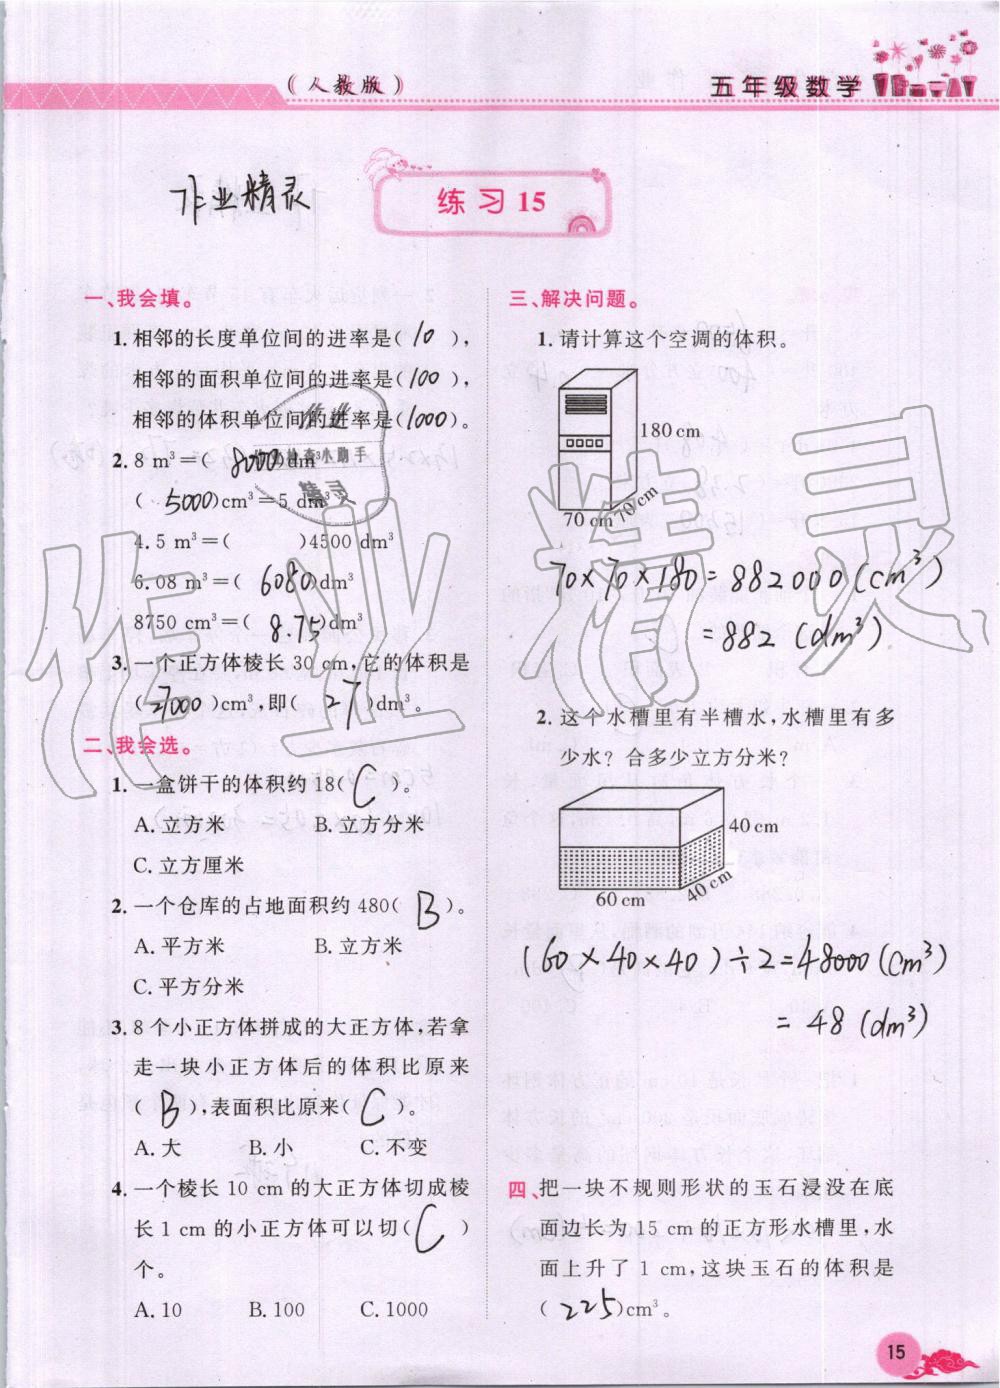 (人教版)
五年级数学
作业精灵
练习 15
一、我会填。
1. 相邻的长度单位间的进率是( 10 ),
相邻的面积单位间的进率是(100),
相邻的体积单位间的进率是(1000)。
2. 8 m³=( 8000)dm³
( 5000)cm³=5 dm³
4.5 m³=( )4500 dm³
6.08 m³=( 6080)dm³
8750 cm³=( 8.75)dm³
3. 一个正方体棱长 30 cm,它的体积是
(27000 )cm³,即( 27 )dm³。
二、我会选。
1. 一盒饼干的体积约 18( C )。
A. 立方米 B. 立方分米
C. 立方厘米
2. 一个仓库的占地面积约 480( B )。
A. 平方米 B. 立方米
C. 平方分米
3. 8 个小正方体拼成的大正方体,若拿
走一块小正方体后的体积比原来
( B ),表面积比原来( C )。
A. 大 B. 小 C. 不变
4. 一个棱长 10 cm 的大正方体切成棱
长 1 cm 的小正方体可以切( C )
个。
A. 10 B. 100 C. 1000
三、解决问题。
1. 请计算这个空调的体积。
180 cm
70 cm 70 cm
70×70×180=882000(cm³)
=882 (dm³)
2. 这个水槽里有半槽水,水槽里有多
少水?合多少立方分米?
40 cm
60 cm 40 cm
(60×40×40)÷2=48000(cm³)
=48 (dm³)
四、把一块不规则形状的玉石浸没在底
面边长为 15 cm 的正方形水槽里,水
面上升了 1 cm,这块玉石的体积是
( 225)cm³。
15
作业精灵